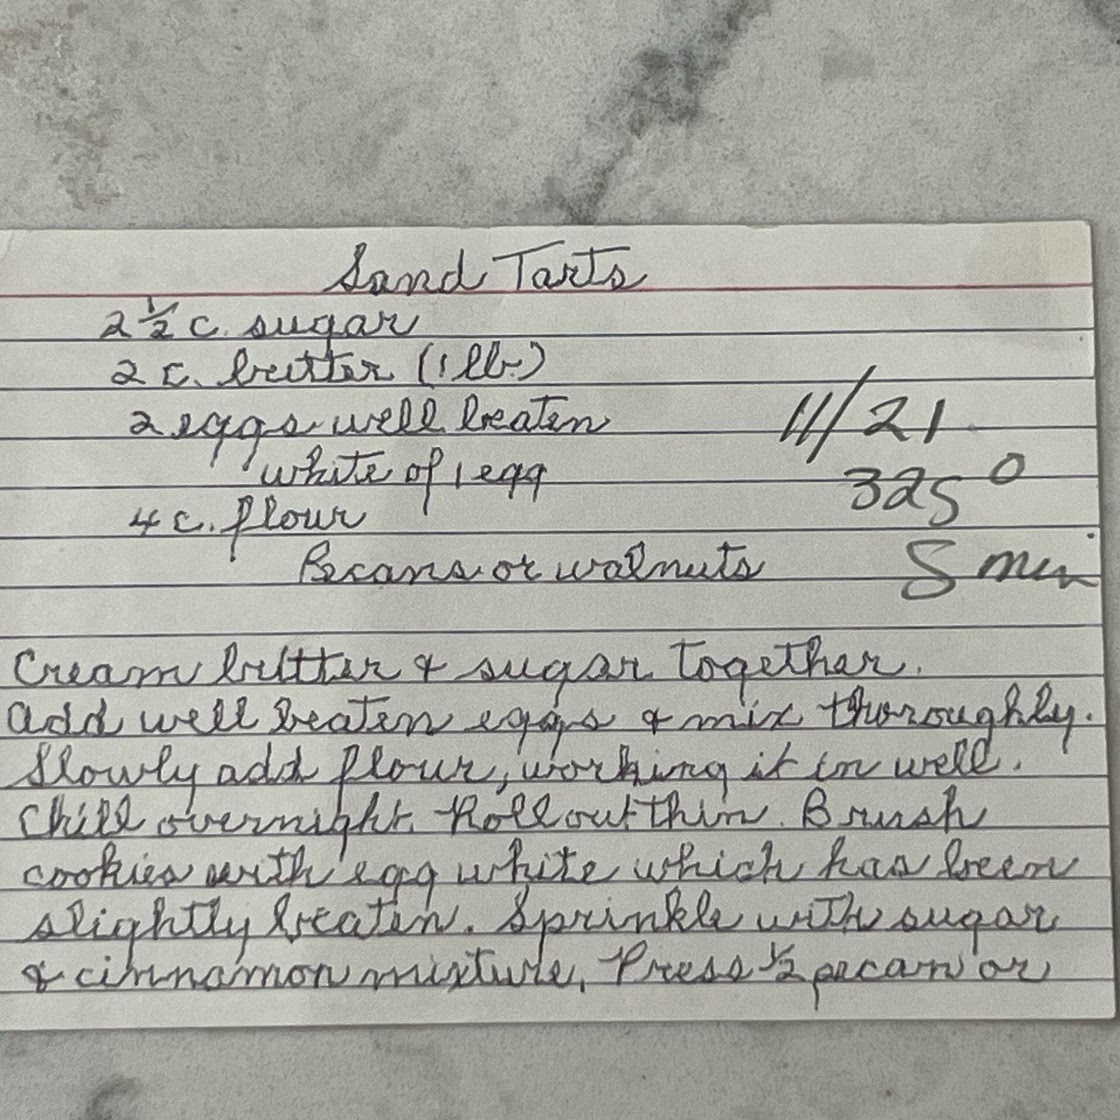 Sand Tarts
2 1/2 c. sugar
2 c. butter (1 lb.)
2 eggs well beaten
11/21
white of 1 egg
325°
4 c. flour
Pecans or walnuts
8 min
Cream butter & sugar together.
Add well beaten eggs & mix thoroughly.
Slowly add flour, working it in well.
Chill overnight. Roll out thin. Brush
cookies with egg white which has been
slightly beaten. Sprinkle with sugar
& cinnamon mixture. Press 1/2 pecan or